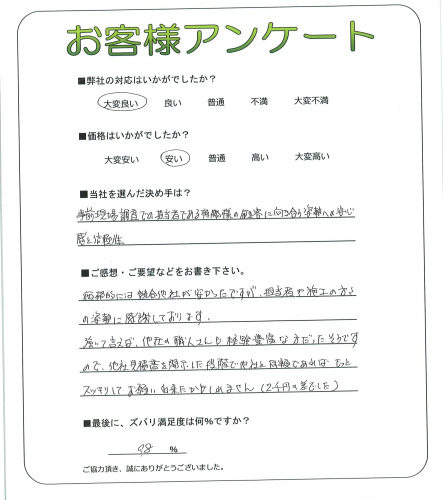 お客様アンケート
■弊社の対応はいかがでしたか？
大変良い 良い 普通 不満 大変不満
■価格はいかがでしたか？
大変安い 安い 普通 高い 大変高い
■当社を選んだ決め手は？
事前現場調査での担当者である 様の顧客に向き合う姿勢への安心
感と信頼性
■ご感想・ご要望などをお書き下さい。
価格的には競合他社が安かったですが、担当者や施工の方々
の姿勢に感謝しております。
強いて言えば、他社の職人さんも経験豊富な方だったそうです
ので、他社見積書を開示した段階で他社と同額であれば もっと
スッキリして お願い出来たかもしれません（2千円の差でした）
■最後に、ズバリ満足度は何%ですか？
98 %
ご協力頂き、誠にありがとうございました。